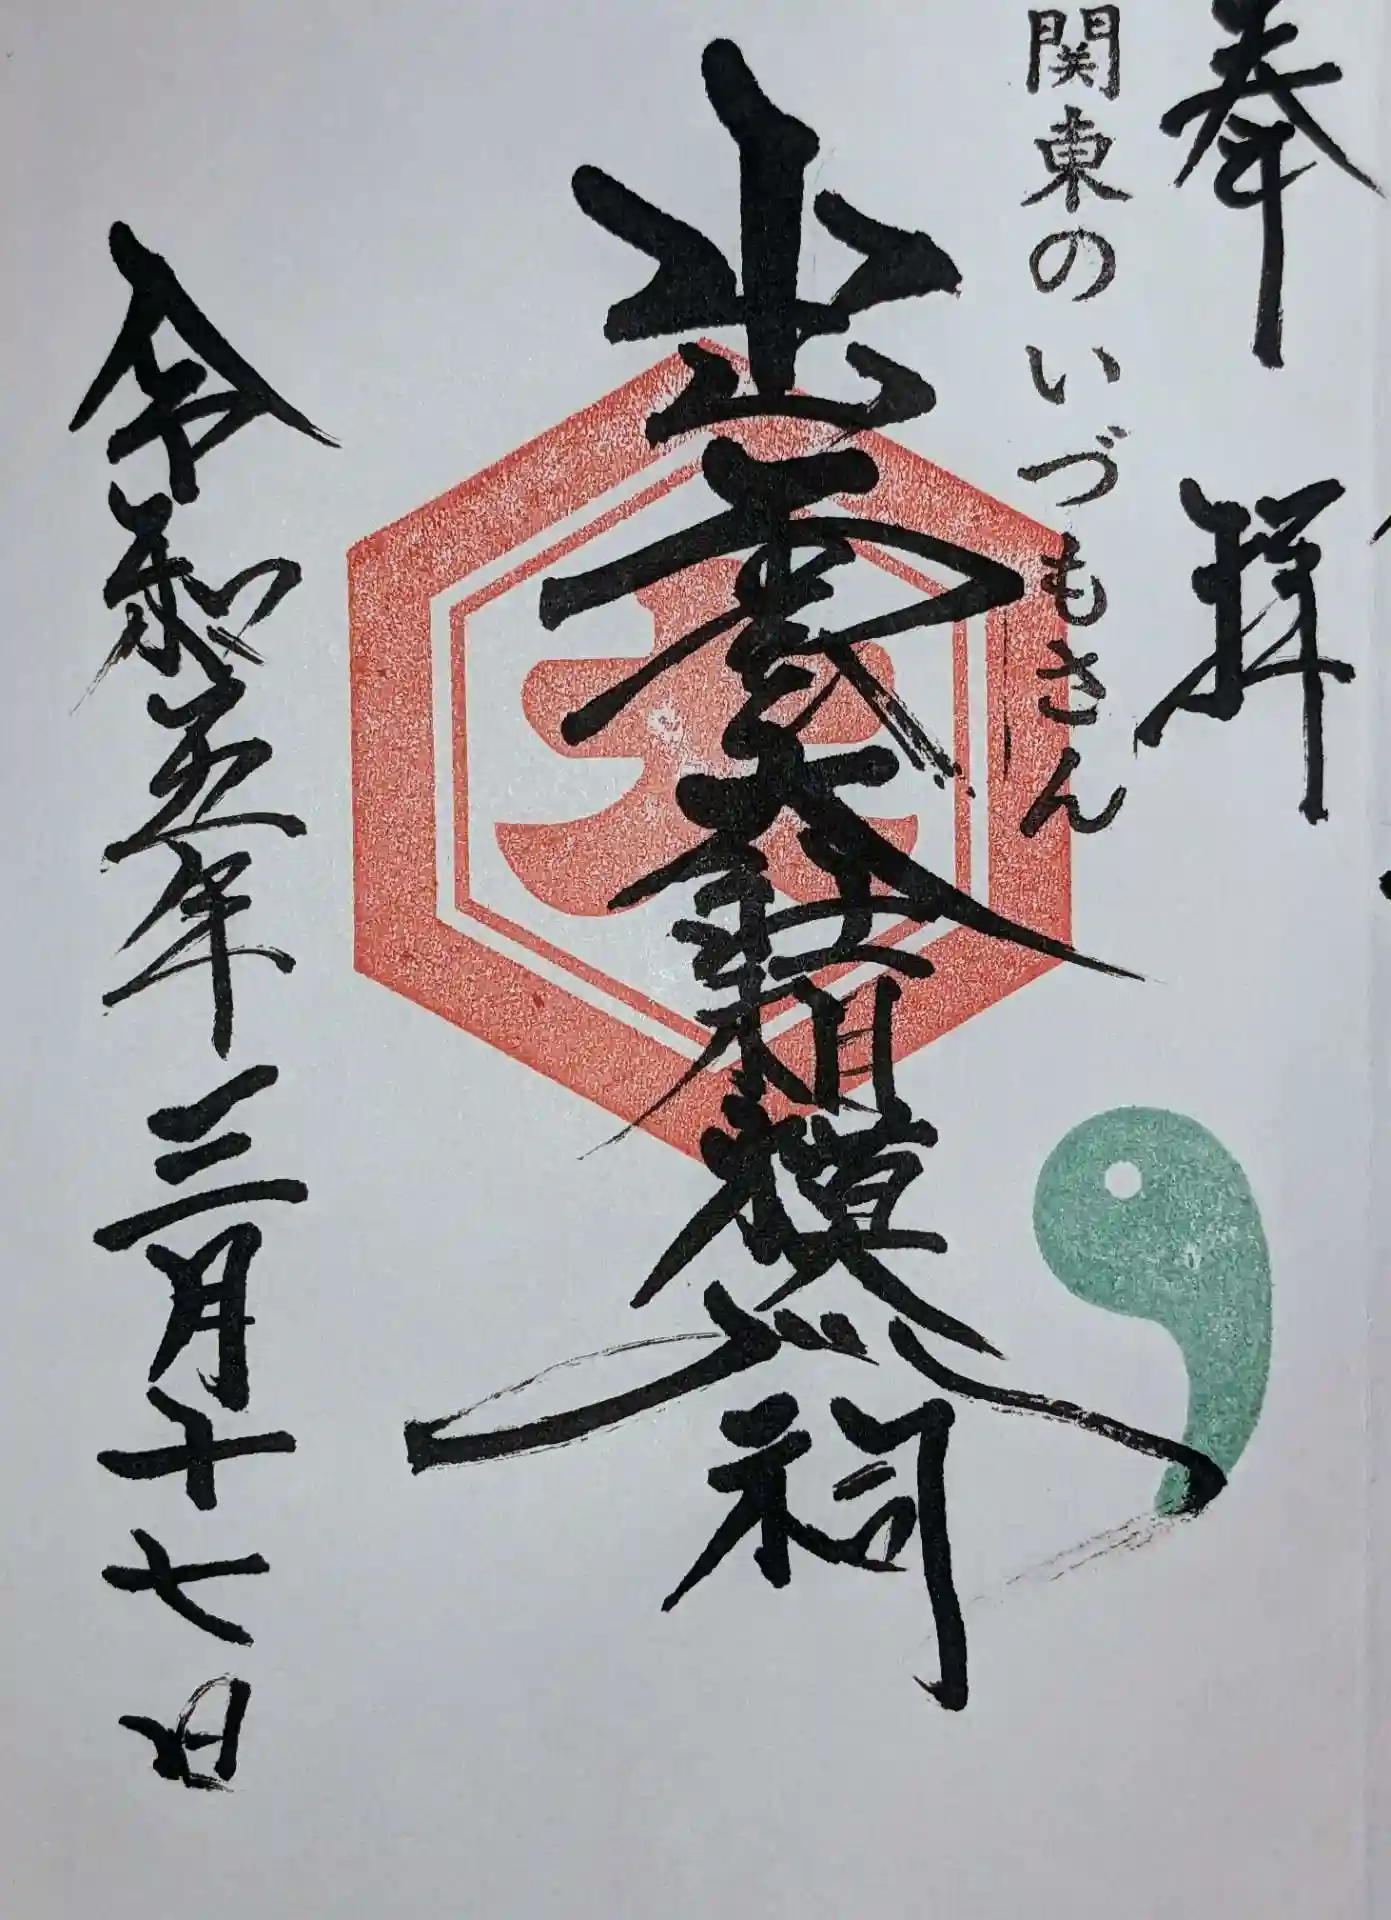 奉拝
関東のいづもさん
出雲大社相模分祠
令和五年三月十七日
大